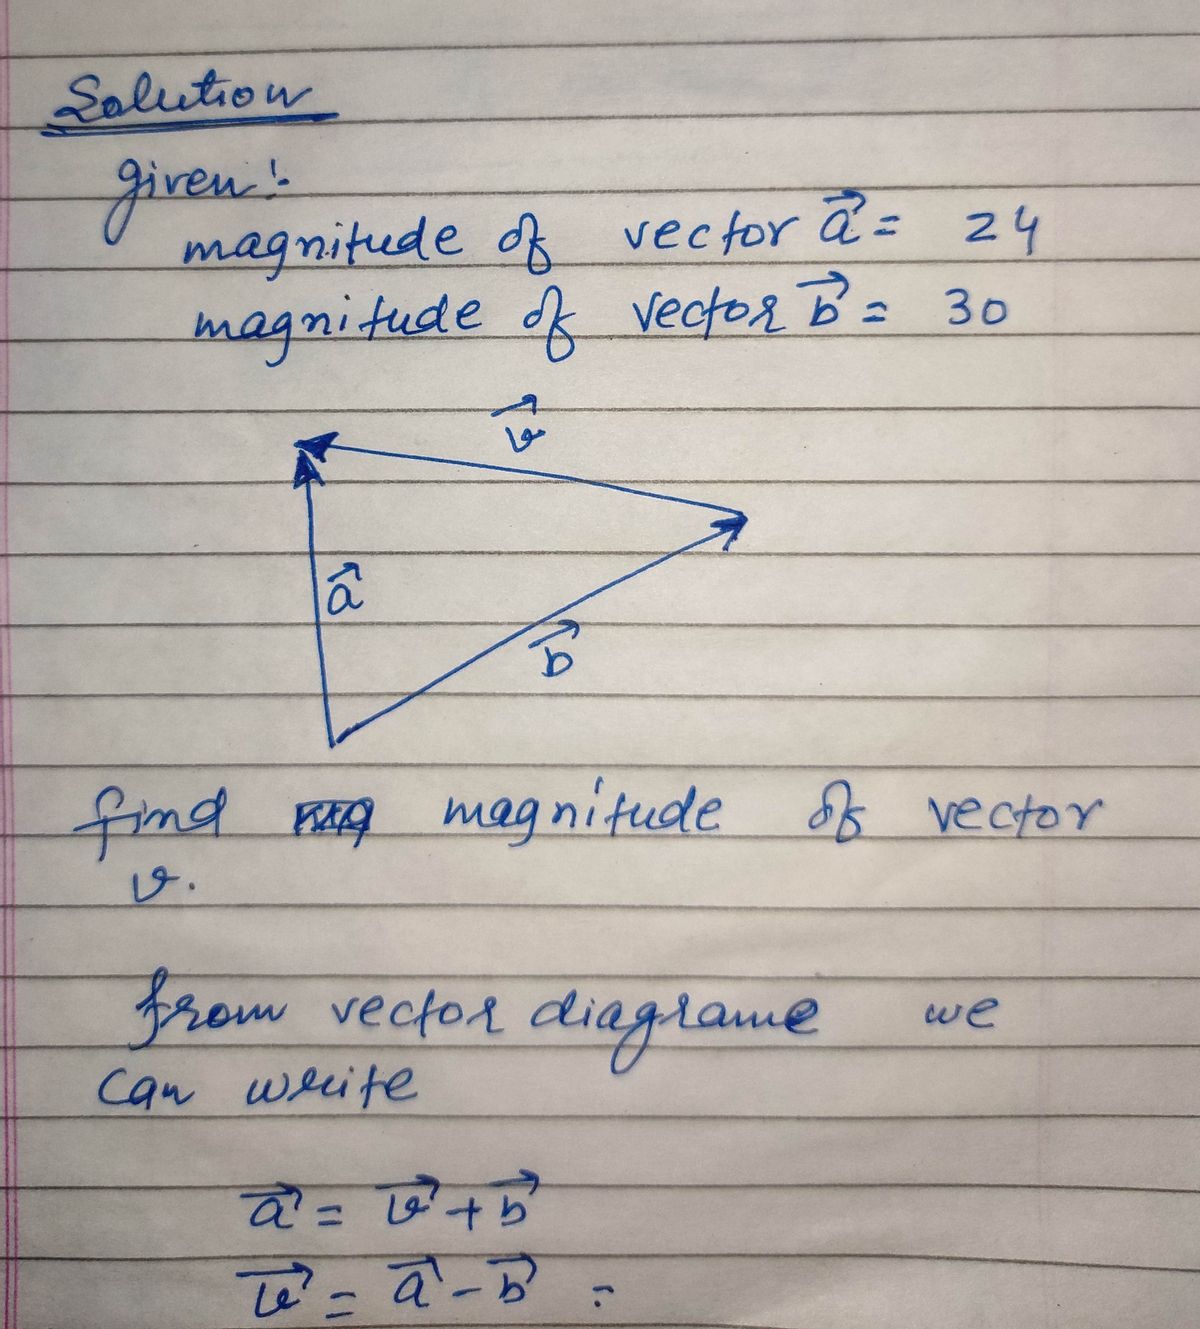 Solution
given:-
magnitude of vector a⃗ = 24
magnitude of vector b⃗ = 30
v⃗
a⃗
b⃗
find magnitude of vector
v.
from vector diagrame we
can write
a⃗ = v⃗ + b⃗
v⃗ = a⃗ - b⃗ =